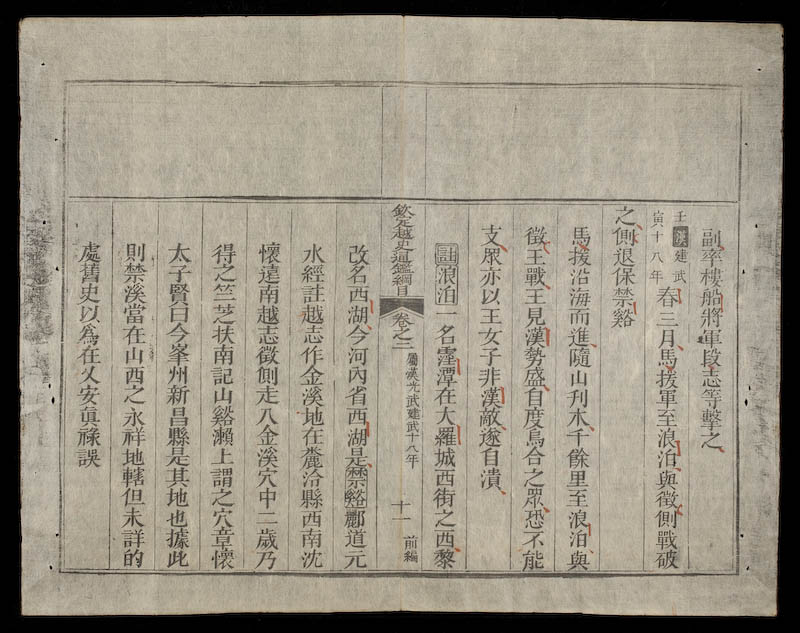 副率樓船將軍段志等擊之
壬寅漢建武十八年春三月馬援軍至浪泊與徵側戰破
之側退保禁谿
馬援沿海而進隨山刋木千餘里至浪泊與
徵王戰王見漢勢盛自度烏合之眾恐不能
支眾亦以王女子非漢敵遂自潰
註浪泊一名霪潭在大羅城西街之西黎
欽定越史通鑑綱目 卷之二 屬漢光武建武十八年 十一 前編
改名西湖今河內省西湖是禁谿酈道元
水經註越志作金溪地在麊泠縣西南沈
懷遠南越志徵側走入金溪穴中二歲乃
得之竺芝扶南記山谿瀨上謂之穴章懷
太子賢曰今峯州新昌縣是其地也據此
則禁溪當在山西之永祥地轄但未詳的
處舊史以爲在乂安眞祿誤